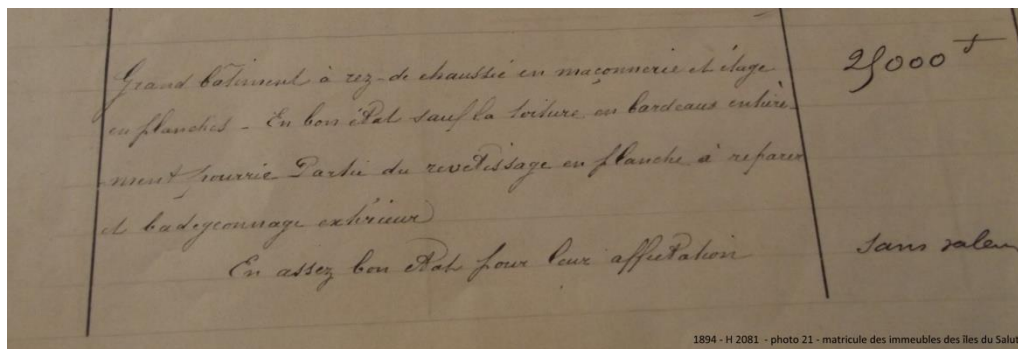 Grand bâtiment à rez-de chaussée en maçonnerie et étage
25000 f
en planches - En bon état sauf la toiture en bardeaux entière-
ment pourrie Partie du revetissage en planche à reparer
et badigeonnage extérieur
En assez bon état pour leur affectation
sans valeur
1894 - H 2081 - photo 21 - matricule des immeubles des îles du Salut